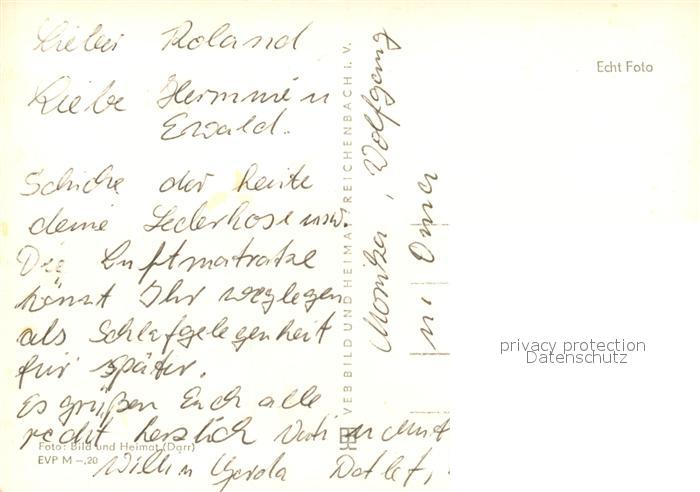 Lieber Roland
Liebe Hermine u
Ewald.
Schicke dir heute
deine Lederhose usw.
Die Luftmatratze
könnt Ihr weglegen
als Schlafgelegenheit
für später.
Es grüßen Euch alle
recht herzlich Vati u Mutt
Willi u Gerda Detlef,
Monika, Wolfgang
u. Oma
Echt Foto
VEB BILD UND HEIMAT REICHENBACH I. V.
Foto: Bild und Heimat (Darr)
EVP M –,20
privacy protection
Datenschutz